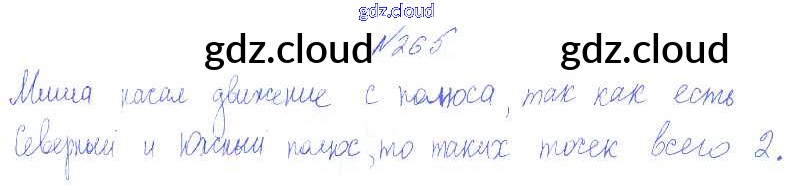 gdz.cloud
№265
gdz.cloud gdz.cloud
Миша начал движение с полюса, так как есть
Северный и Южный полюс, то таких точек всего 2.